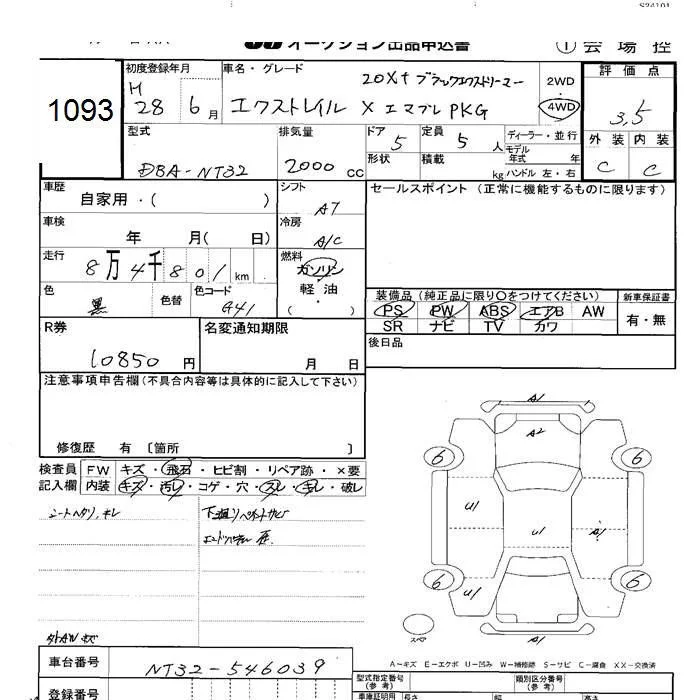 オークション出品申込書 ① 会場控
1093
初度登録年月 車名・グレード 2WD 評価点
H 28 6月 エクストレイル 20Xt ブラックエクストリーマー
X エマブレPKG 4WD 3,5
型式 排気量 ドア 定員 ディーラー・並行 外装 内装
DBA-NT32 2000 cc 5 5人 モデル年式 年
形状 積載 kg ハンドル 左・右 C C
車歴 シフト セールスポイント (正常に機能するものに限ります)
自家用・( ) AT
車検 冷房
年 月( 日) A/C
走行 燃料
8万4千801km ガソリン
軽油
・
( )
色 色替 色コード
黒 G41
装備品 (純正品に限り〇をつけてください) 新車保証書
PS PW ABS エアB AW 有・無
SR ナビ TV カワ
R券 名変通知期限 後日品
10850円 月 日
注意事項申告欄 (不具合内容等は具体的に記入して下さい)
修復歴 有 〔箇所 〕
検査員 FW キズ・飛石・ヒビ割・リペア跡・×要
記入欄 内装 キズ・汚レ・コゲ・穴・スレ・キレ・破レ
シートヘタリ、キレ
下廻リペイントサビ
A1
A2
6 6
U1
U1 A1
U1
6 6
スペア
A1
外AWキズ
A-キズ E-エクボ U-凹み W-補修跡 S-サビ C-腐食 XX-交換済
車台番号 NT32-546039
型式指定番号 (参考) 類別区分番号 (参考)
登録番号